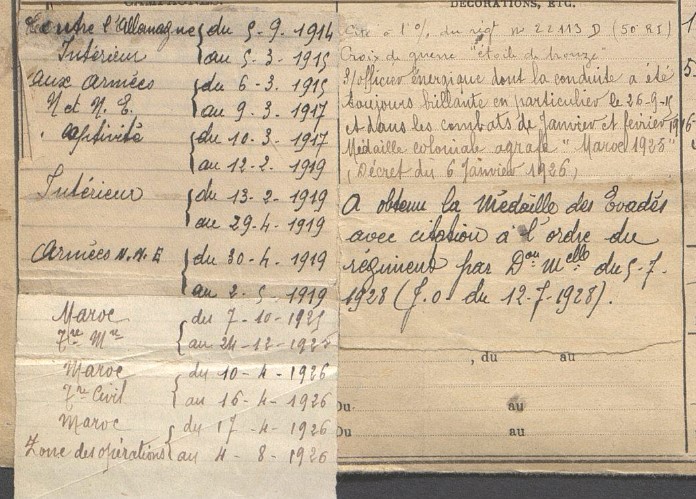 CAMPAGNES.
Contre l'Allemagne { du 5-9-1914
Intérieur { au 5-3-1915
aux armées { du 6-3-1915
N et N. E. { au 9-3-1917
Captivité { du 10-3-1917
au 12-2-1919
Intérieur { du 13-2-1919
au 29-4-1919
Armées N. N. E { du 30-4-1919
au 2-5-1919
Maroc { du 7-10-1925
au 24-12-1925
Maroc { du 10-4-1926
Civil { au 16-4-1926
Maroc { du 17-4-1926
Zone des opérations { au 4-8-1926
DÉCORATIONS, ETC.
Cité à l'O/. du régt n° 22113 D (50 RI)
Croix de guerre "étoile de bronze"
S/officier énergique dont la conduite a été
toujours brillante en particulier le 26-9-15
et dans les combats de Janvier et fevrier 1916
Médaille coloniale agrafe "Maroc 1925"
(Décret du 6 Janvier 1926)
A obtenu la Médaille des Evadés
avec citation à l'ordre du
régiment par Don Melle du 5-7-
1928 (J.O. du 12-7-1928).
, du au
Du au
Du au